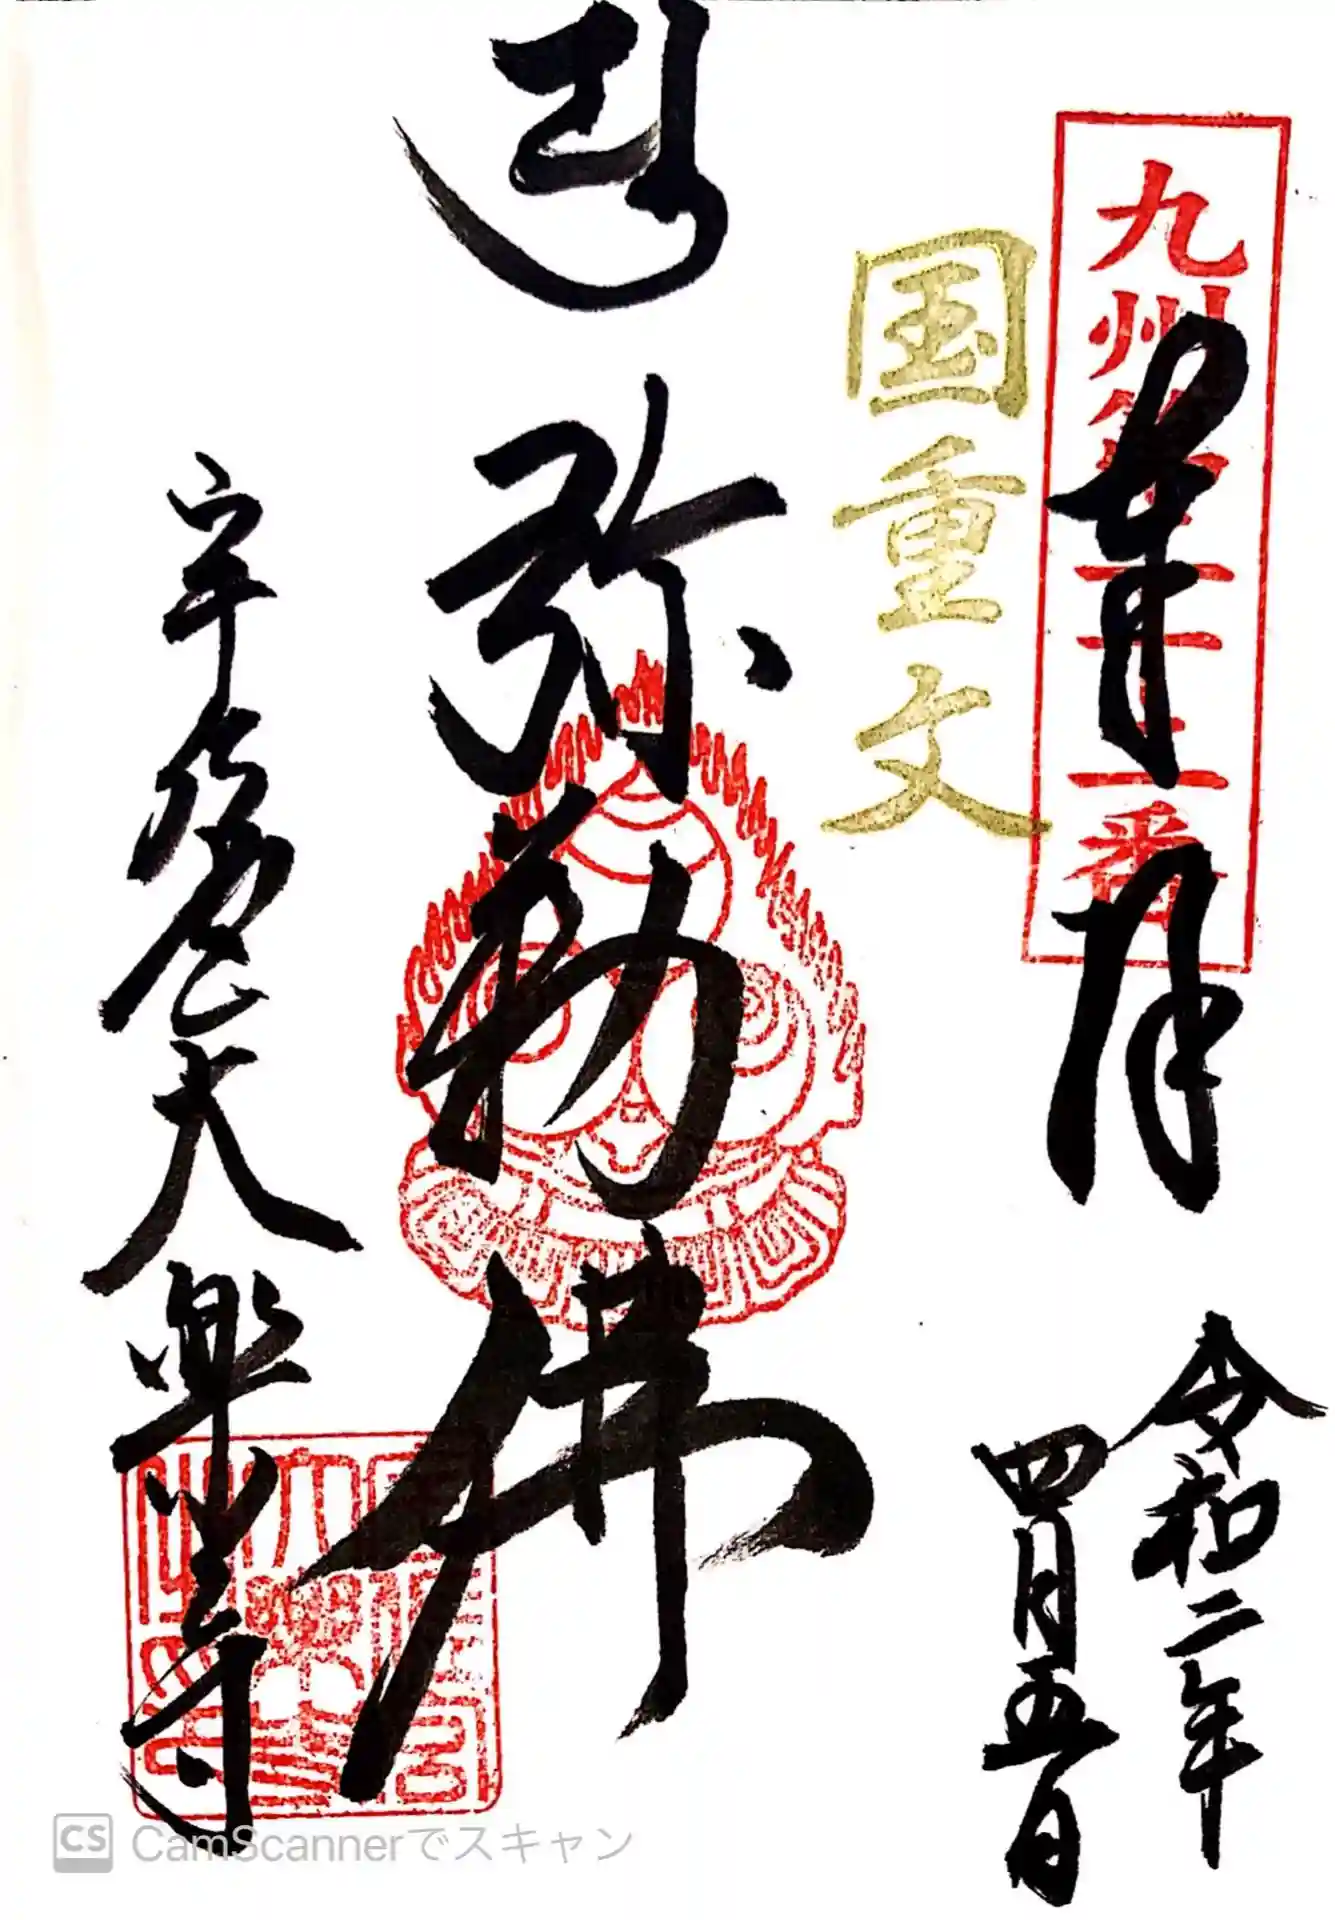 九州第二十一番
奉拝
令和二年
四月五日
国重文
弥勒佛
宇佐
大楽寺
CS CamScannerでスキャン